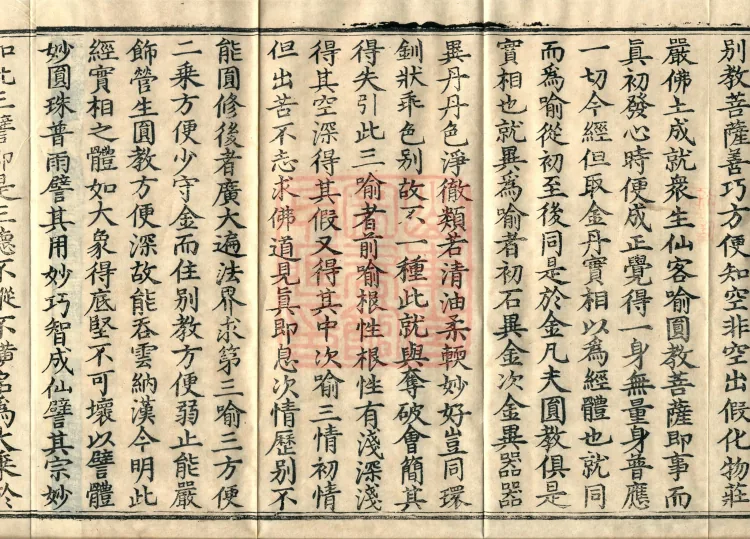 別教菩薩善巧方便知空非空出假化物莊
嚴佛土成就衆生仙客喻圓教菩薩即事而
眞初發心時便成正覺得一身無量身普應
一切今經但取金丹實相以爲經體也就同
而爲喻從初至後同是於金凡夫圓教俱是
實相也就異爲喻者初石異金次金異器器
異丹丹色淨徹類若清油柔輭妙好豈同環
釧狀乖色別故不一種此就與奪破會簡其
得失引此三喻者前喻根性根性有淺深淺
得其空深得其假又得其中次喻三情初情
但出苦不忘求佛道見眞即息次情歷別不
能圓修後者廣大遍法界求第三喻三方便
二乗方便少守金而住別教方便弱止能嚴
飾營生圓教方便深故能吞雲納漢今明此
經實相之體如大象得底堅不可壞以譬體
妙圓珠普雨譬其用妙巧智成仙譬其宗妙
如此三譬即是三德不縱不橫名爲大乗於